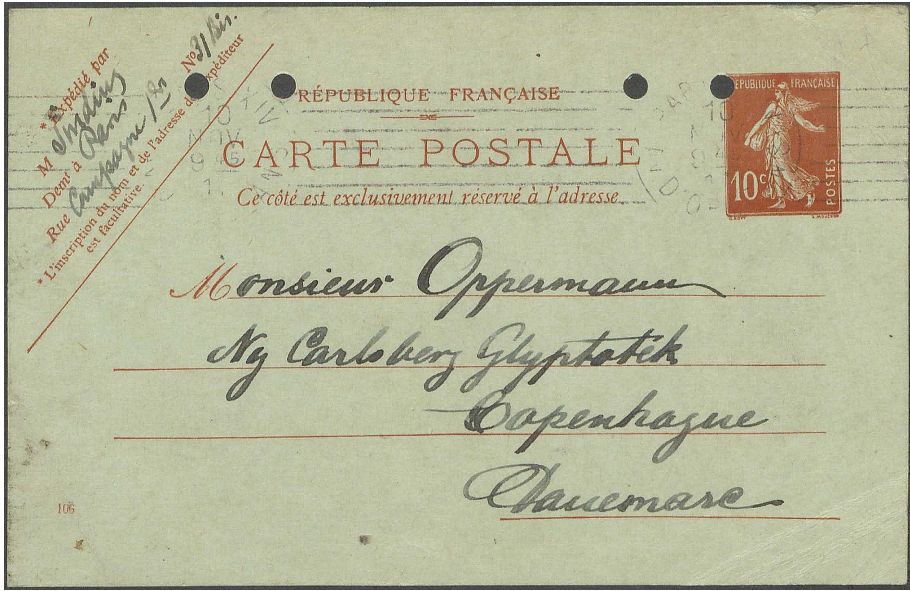 * Expédié par
M Sinding N° 31 Bis.
Demt à Paris
Rue Campagne 1re
* L'inscription du nom et de l'adresse de l'expéditeur
est facultative.
RÉPUBLIQUE FRANÇAISE
CARTE POSTALE
Ce côté est exclusivement réservé à l'adresse.
RÉPUBLIQUE FRANÇAISE
10c
POSTES
XIV
10
NOV
10
Monsieur Oppermann
Ny Carlsberg Glyptoték
Copenhague
Danemarc
106